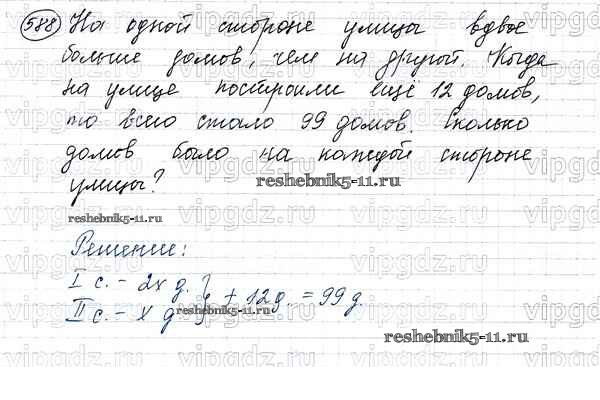 588 На одной стороне улицы вдвое
больше домов, чем на другой. Когда
на улице построили ещё 12 домов,
то всего стало 99 домов. Сколько
домов было на каждой стороне
улицы?
reshebnik5-11.ru
reshebnik5-11.ru
Решение:
I с. - 2x д. } + 12 д. = 99 д.
II с. - x д.
reshebnik5-11.ru
reshebnik5-11.ru